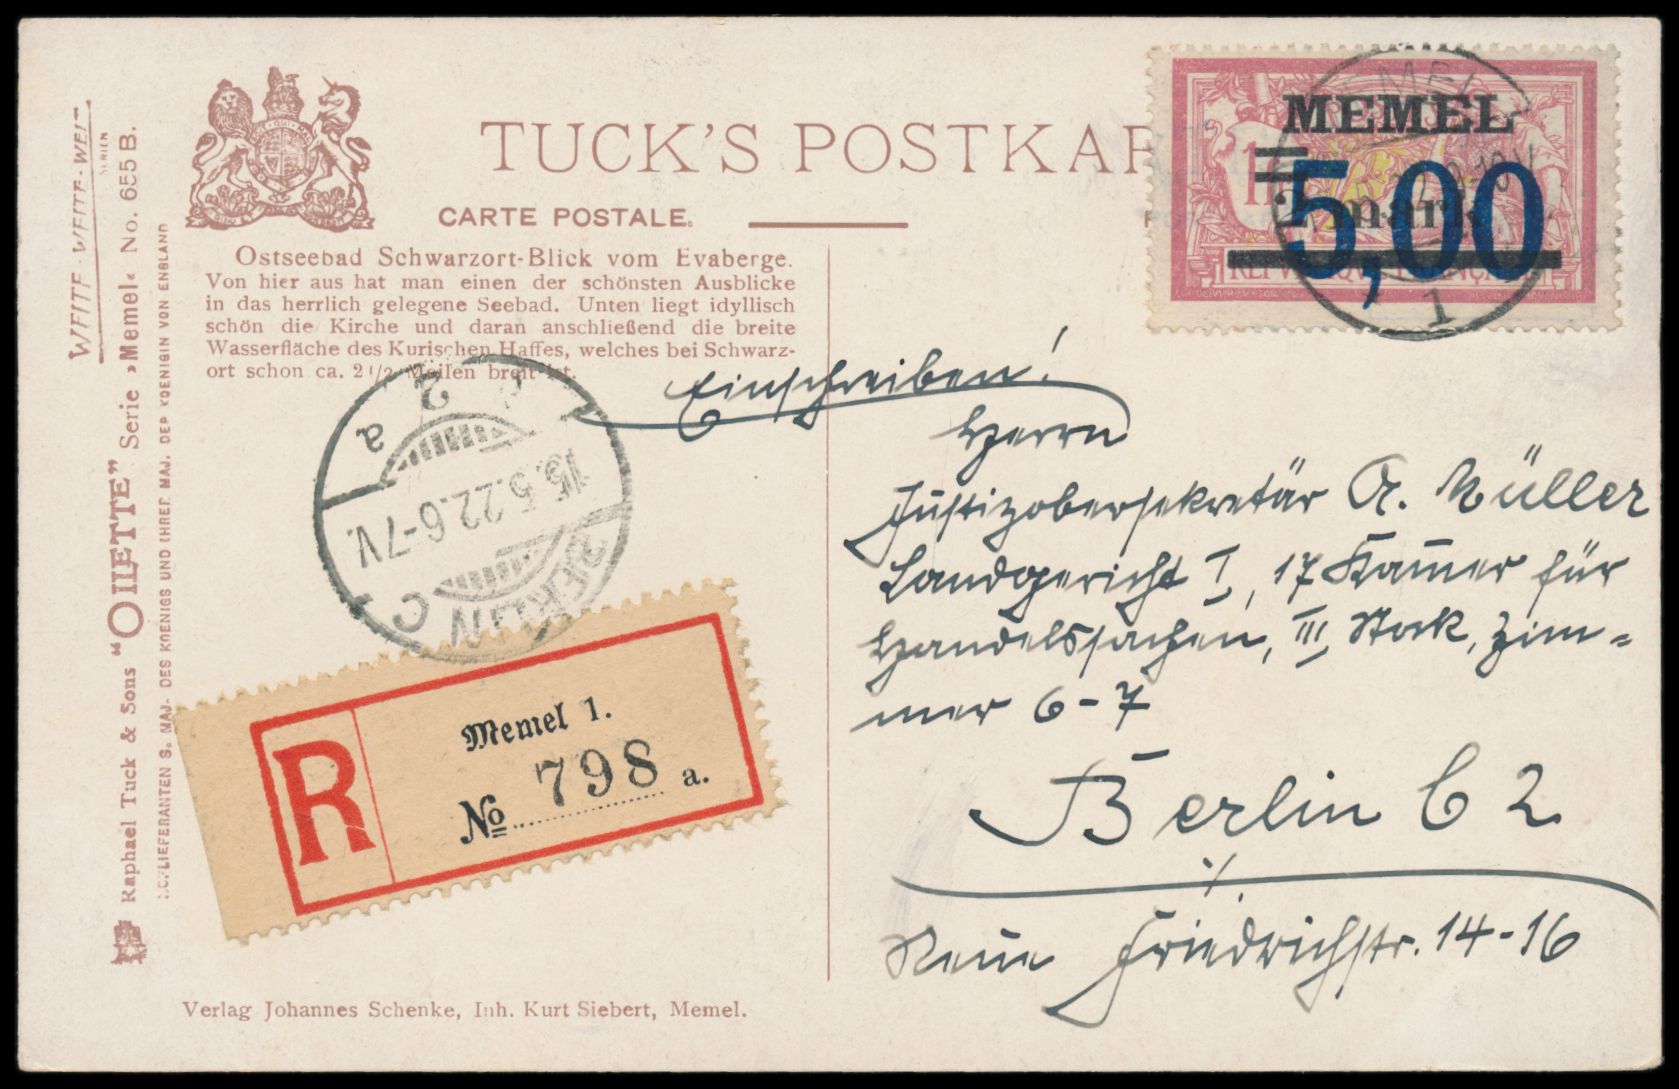 TUCK'S POSTKAR
CARTE POSTALE.
Ostseebad Schwarzort-Blick vom Evaberge.
Von hier aus hat man einen der schönsten Ausblicke
in das herrlich gelegene Seebad. Unten liegt idyllisch
schön die Kirche und daran anschließend die breite
Wasserfläche des Kurischen Haffes, welches bei Schwarz-
ort schon ca. 2 1/2 Meilen breit ist.
WEITE-WEIT
SERIEN
Raphael Tuck & Sons "OILETTE" Serie »Memel« No. 655 B.
HOFLIEFERANTEN S. MAJ. DES KOENIGS UND IHRER MAJ. DER KOENIGIN VON ENGLAND
MEMEL
5,00
mark
1
BERLIN C
2
a
15.5.22.6-7V.
R
Memel 1.
No 798 a.
Einschreiben!
Herrn
Justizobersekretär A. Müller
Landgericht I, 17 Kam̅er für
Handelssachen, III, Stock, Zim=
mer 6-7
Berlin C 2
Neue Friedrichstr. 14-16
Verlag Johannes Schenke, Inh. Kurt Siebert, Memel.